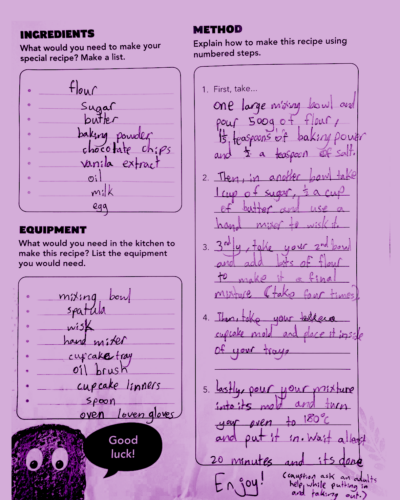 INGREDIENTS
What would you need to make your
special recipe? Make a list.
flour
sugar
butter
baking powder
chocolate chips
vanila extract
oil
milk
egg
EQUIPMENT
What would you need in the kitchen to
make this recipe? List the equipment
you would need.
mixing bowl
spatula
wisk
hand mixer
cupcake tray
oil brush
cupcake linners
spoon
oven (oven gloves
Good
luck!
METHOD
Explain how to make this recipe using
numbered steps.
1. First, take...
one large mixing bowl and
pour 500g of flour,
1½ teaspoons of baking power
and ½ a teaspoon of salt.
2. Then, in another bowl take
1 cup of sugar, ½ a cup
of butter and use a
hand mixer to wisk it
3. 3rdly, take your 2nd bowl
and add bits of flour
to make it a final
mixture (take four times)
4. Then take your
cupcake mold and place it inside
of your trays
5. lastly pour your mixture
into its mold and turn
your oven to 180°c
and put it in. Wait atleast
20 minutes and its done
Enjoy!
(caustion ask an adults
help while putting in
and taking out.)